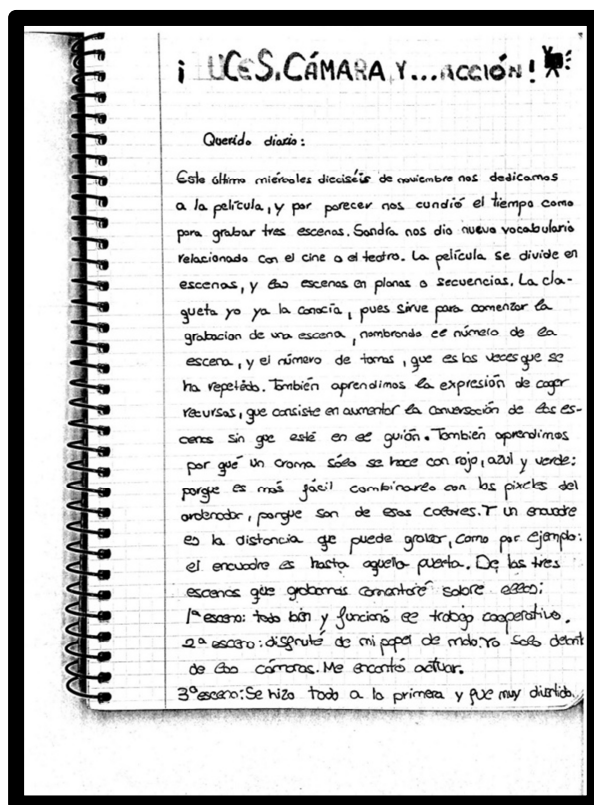 ¡LUCES, CÁMARA Y... ACCIÓN!
Querido diario:
Este último miércoles dieciséis de noviembre nos dedicamos
a la película, y por parecer nos cundió el tiempo como
para grabar tres escenas. Sandra nos dio nuevo vocabulario
relacionado con el cine o el teatro. La película se divide en
escenas, y las escenas en planos o secuencias. La cla-
queta yo ya la conocía, pues sirve para comenzar la
grabacion de una escena, nombrando el número de la
escena, y el número de tomas, que es las veces que se
ha repetido. También aprendimos la expresión de coger
recursos, que consiste en aumentar la conversación de las es-
cenas sin que esté en el guión. También aprendimos
por qué un croma sólo se hace con rojo, azul y verde:
porque es más fácil combinarlo con los pixeles del
ordenador, porque son de esos colores. Y un encuadre
es la distancia que puede grabar, como por ejemplo:
el encuadre es hasta aquella puerta. De las tres
escenas que grabamos comentaré sobre ellas:
1ª escena: todo bién y funcionó el trabajo cooperativo.
2ª escena: disfruté de mi papel de malo, yo solo
de las cámaras. Me encantó actuar.
3ª escena: Se hizo todo a la primera y fue muy divertido.